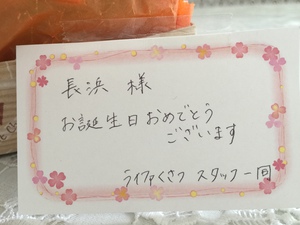 長浜 様
お誕生日おめでとう
ございます
ライファくさつ スタッフ一同